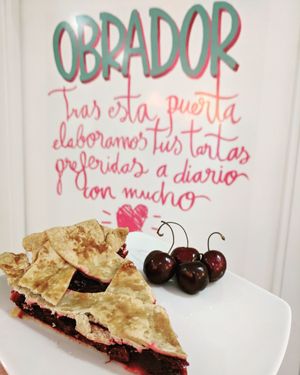 OBRADOR
Tras esta puerta
elaboramos tus tartas
preferidas a diario
con mucho